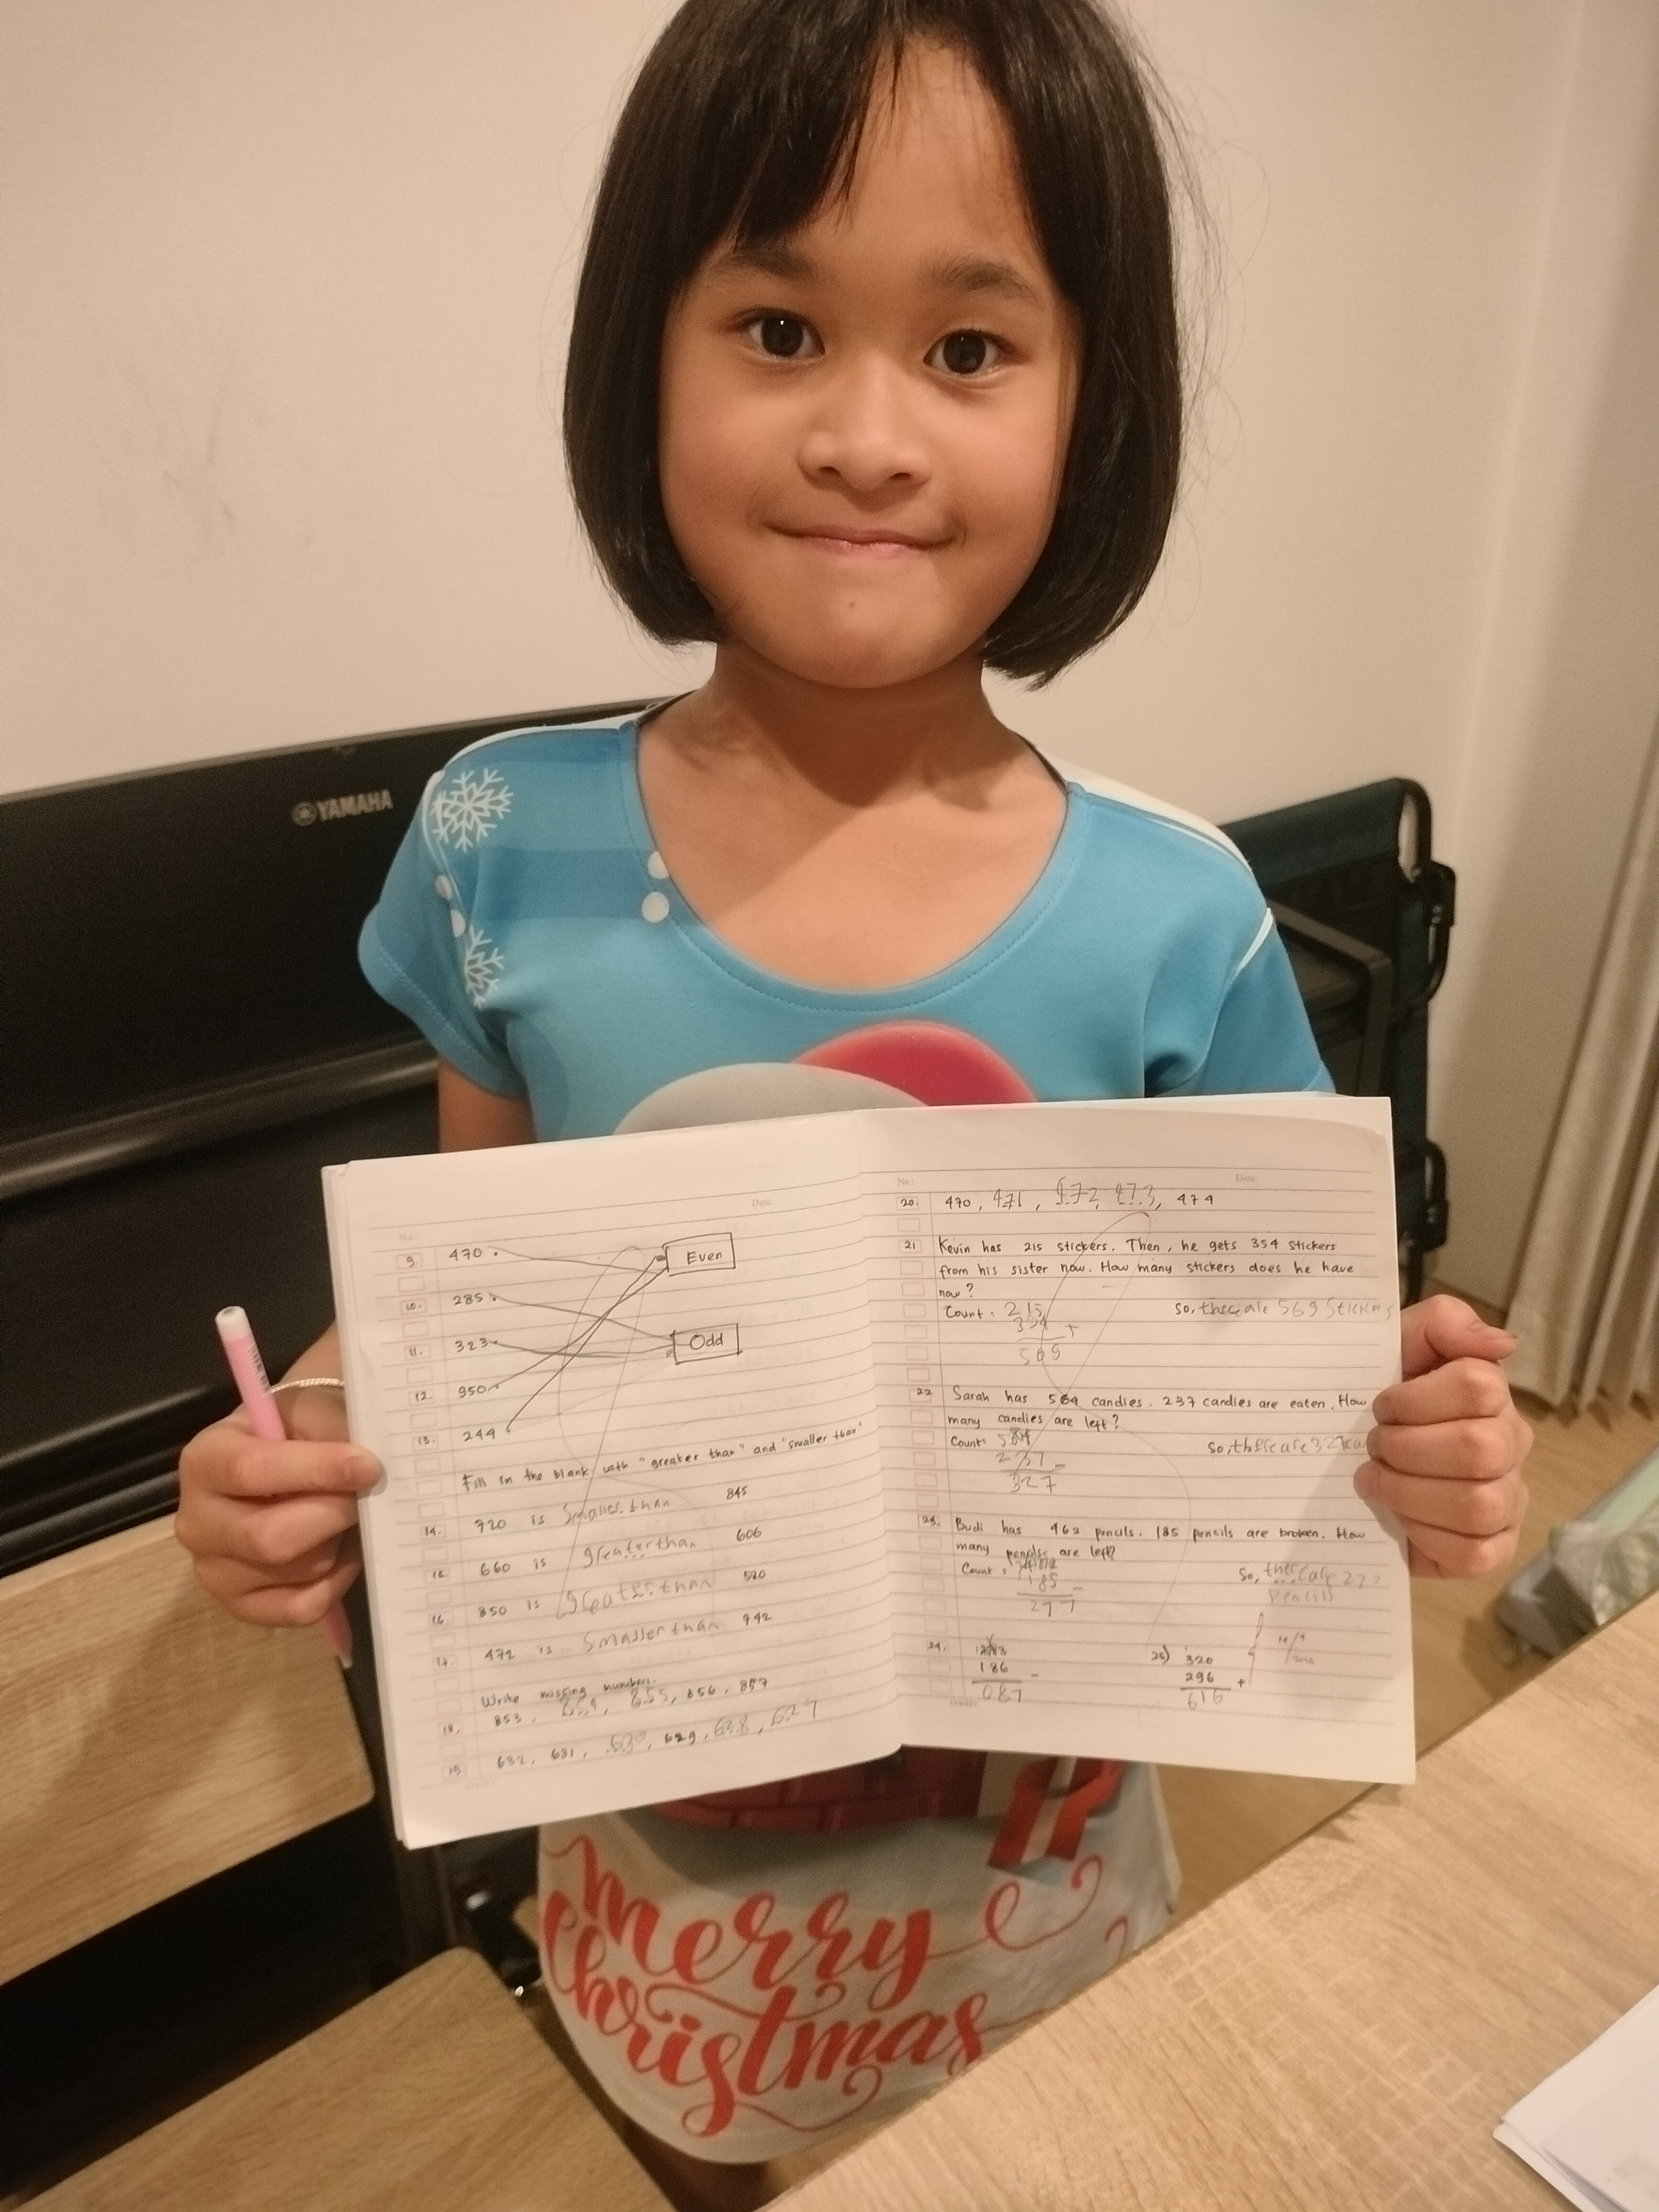 YAMAHA
No.:
Date:
9. 470
Even
10. 285
11. 323
Odd
12. 950
13. 244
Fill in the blank with "greater than" and "smaller than"
14. 720 is smaller than 845
15. 660 is greater than 606
16. 850 is greater than 520
17. 472 is smaller than 742
Write missing numbers.
18. 853, 854, 855, 856, 857
19. 632, 631, 630, 629, 628, 627
No.:
Date:
20. 470, 471, 472, 473, 474
21 Kevin has 215 stickers. Then, he gets 354 stickers
from his sister now. How many stickers does he have
now?
Count = 215
354 +
569
So, there are 569 Stickers
22 Sarah has 564 candies. 237 candies are eaten. How
many candies are left?
Count = 564
237 -
327
So, there are 327
23. Budi has 462 pencils. 185 pencils are broken. How
many pencils are left?
Count =
185 -
277
So, there are 277
pencils
24.
186 -
087
25) 320
296 +
616
merry
Christmas